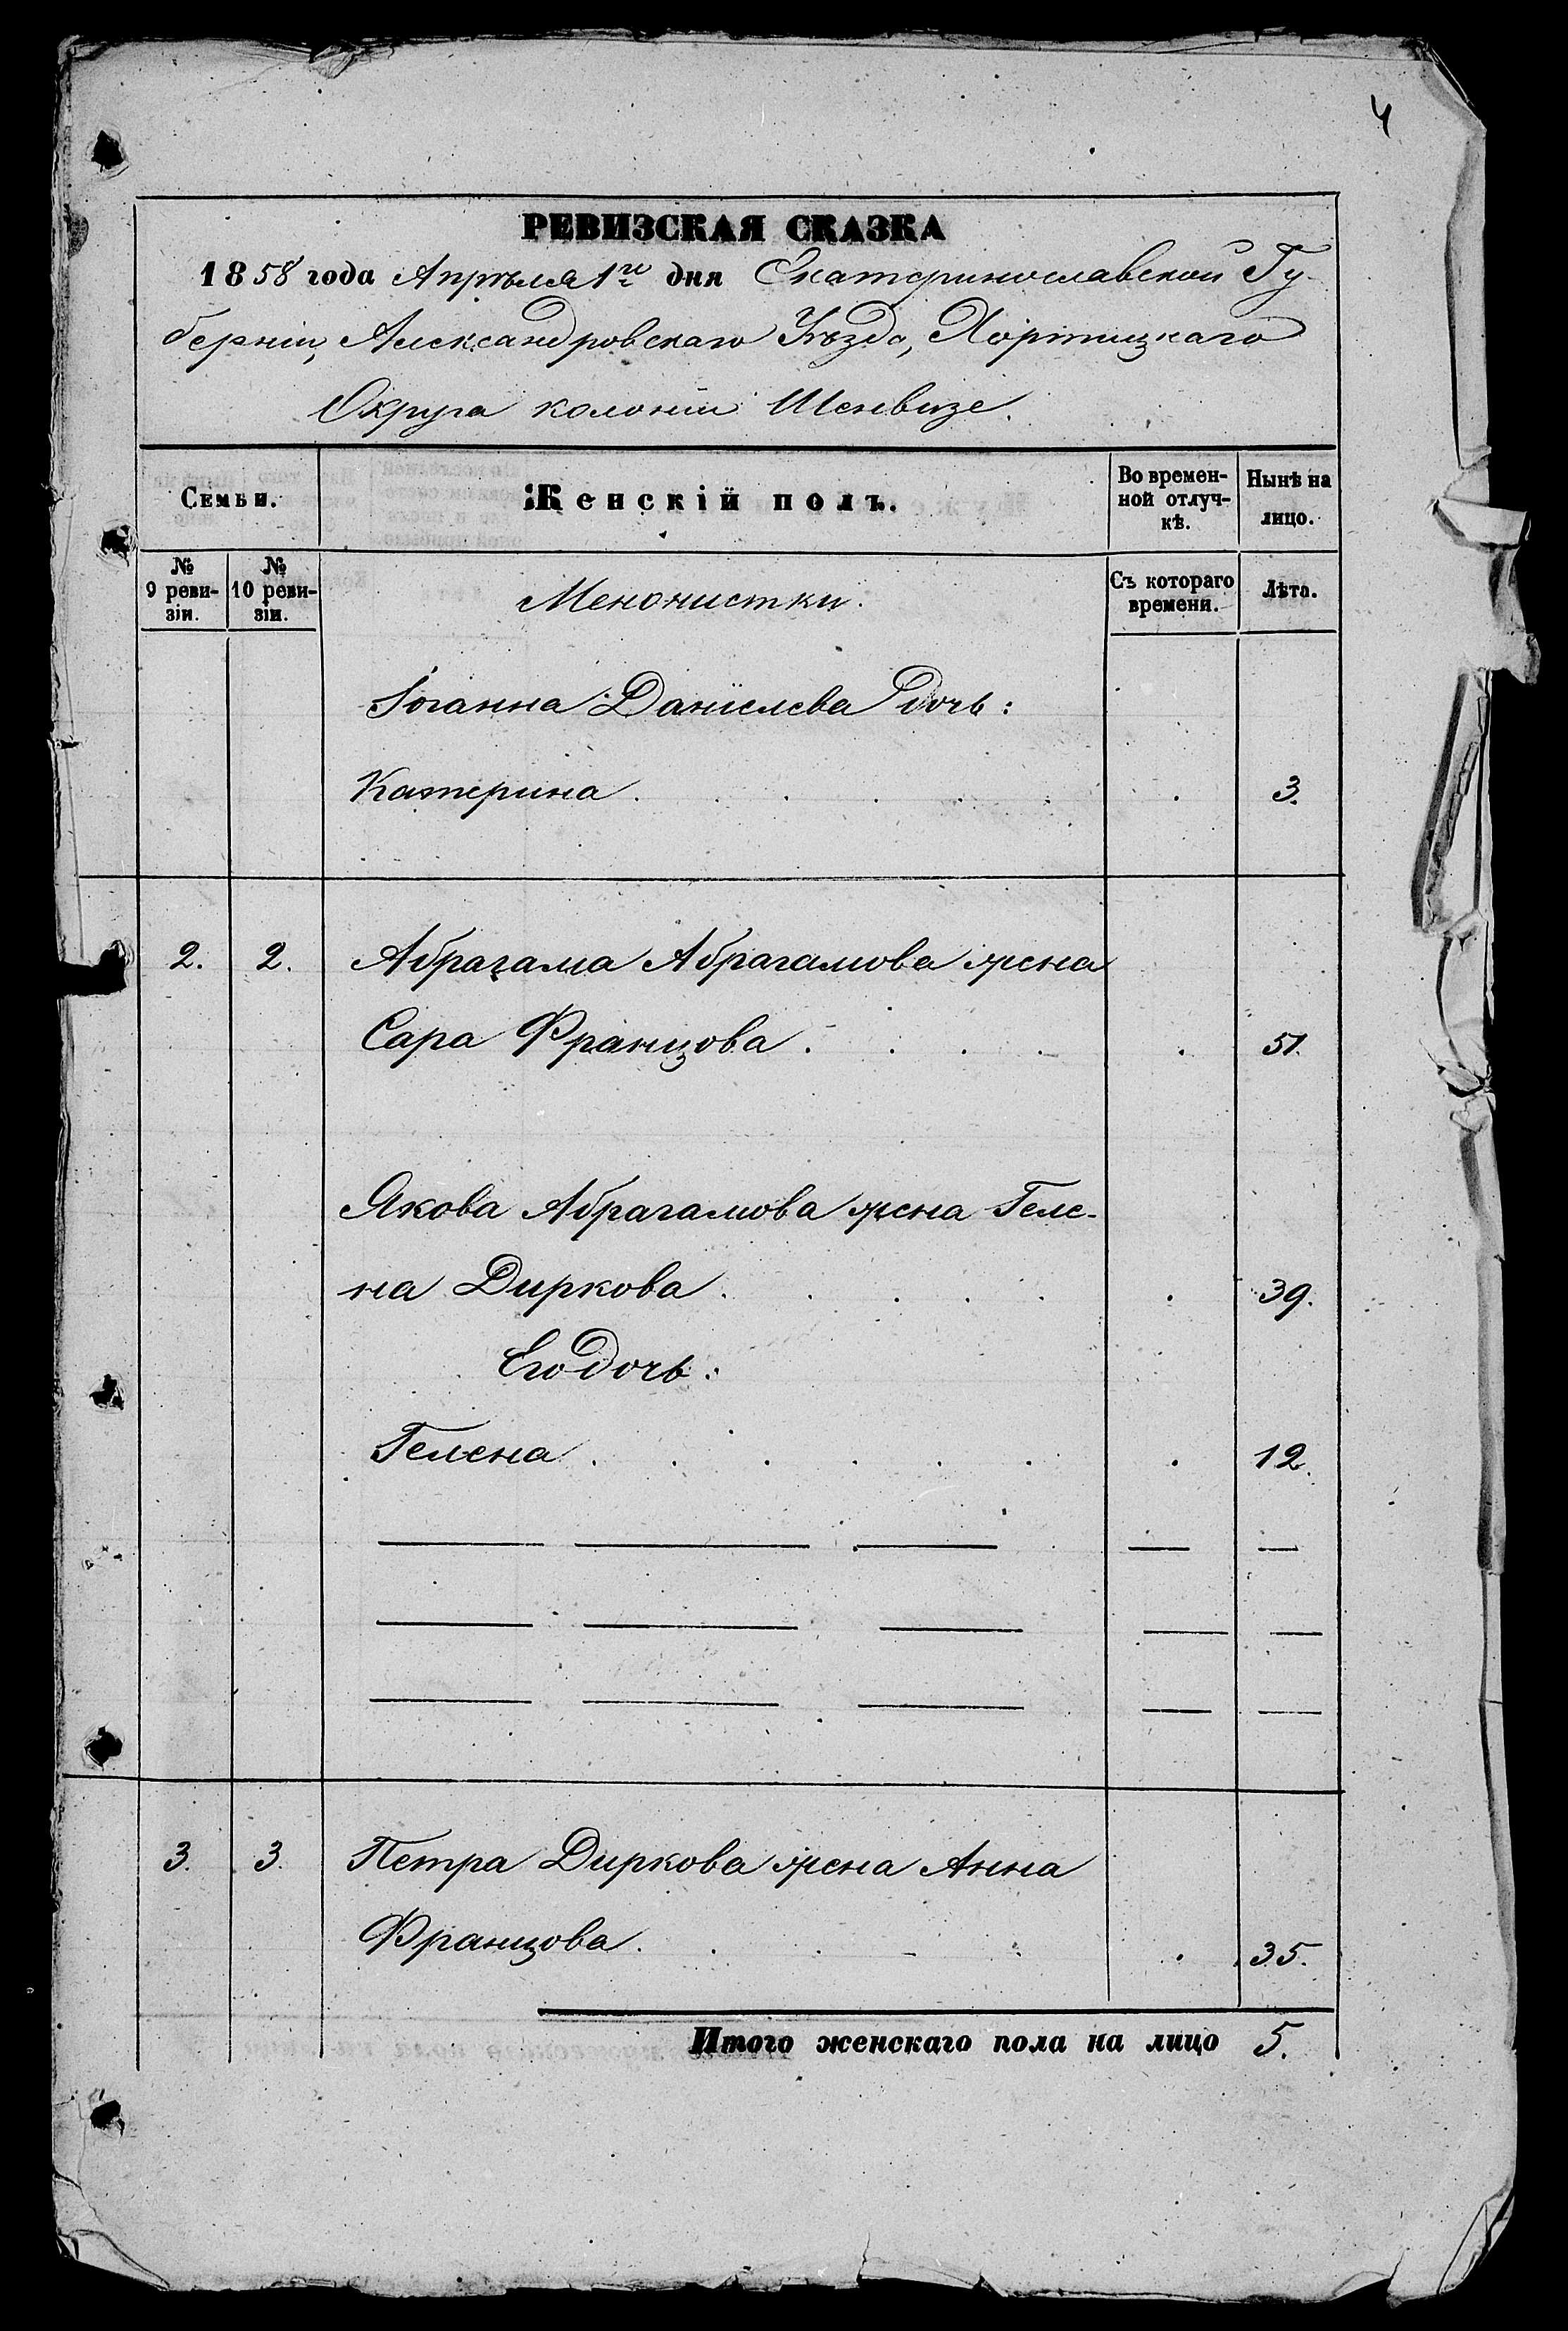 4
РЕВИЗСКАЯ СКАЗКА
1858 года Апрѣля 1го дня Екатеринославской Гу-
берніи, Александровскаго Уѣзда, Хортицкаго
Округа колоніи Шенвизе.
Семьи.
Женскій полъ.
Во времен-
ной отлуч-
кѣ.
Нынѣ на
лицо.
№
9 реви-
зіи.
№
10 реви-
зіи.
Менонистки.
Съ котораго
времени.
Лѣта.
Іоганна Даніелева дочь:
Катерина . . . . . . . 3.
2. 2. Абрагама Абрагамова жена
Сара Францова . . . . . 51.
Якова Абрагамова жена Геле-
на Диркова . . . . . . 39.
Его дочь:
Гелена . . . . . . . 12.
3. 3. Петра Диркова жена Анна
Францова . . . . . . 35.
Итого женскаго пола на лицо 5.